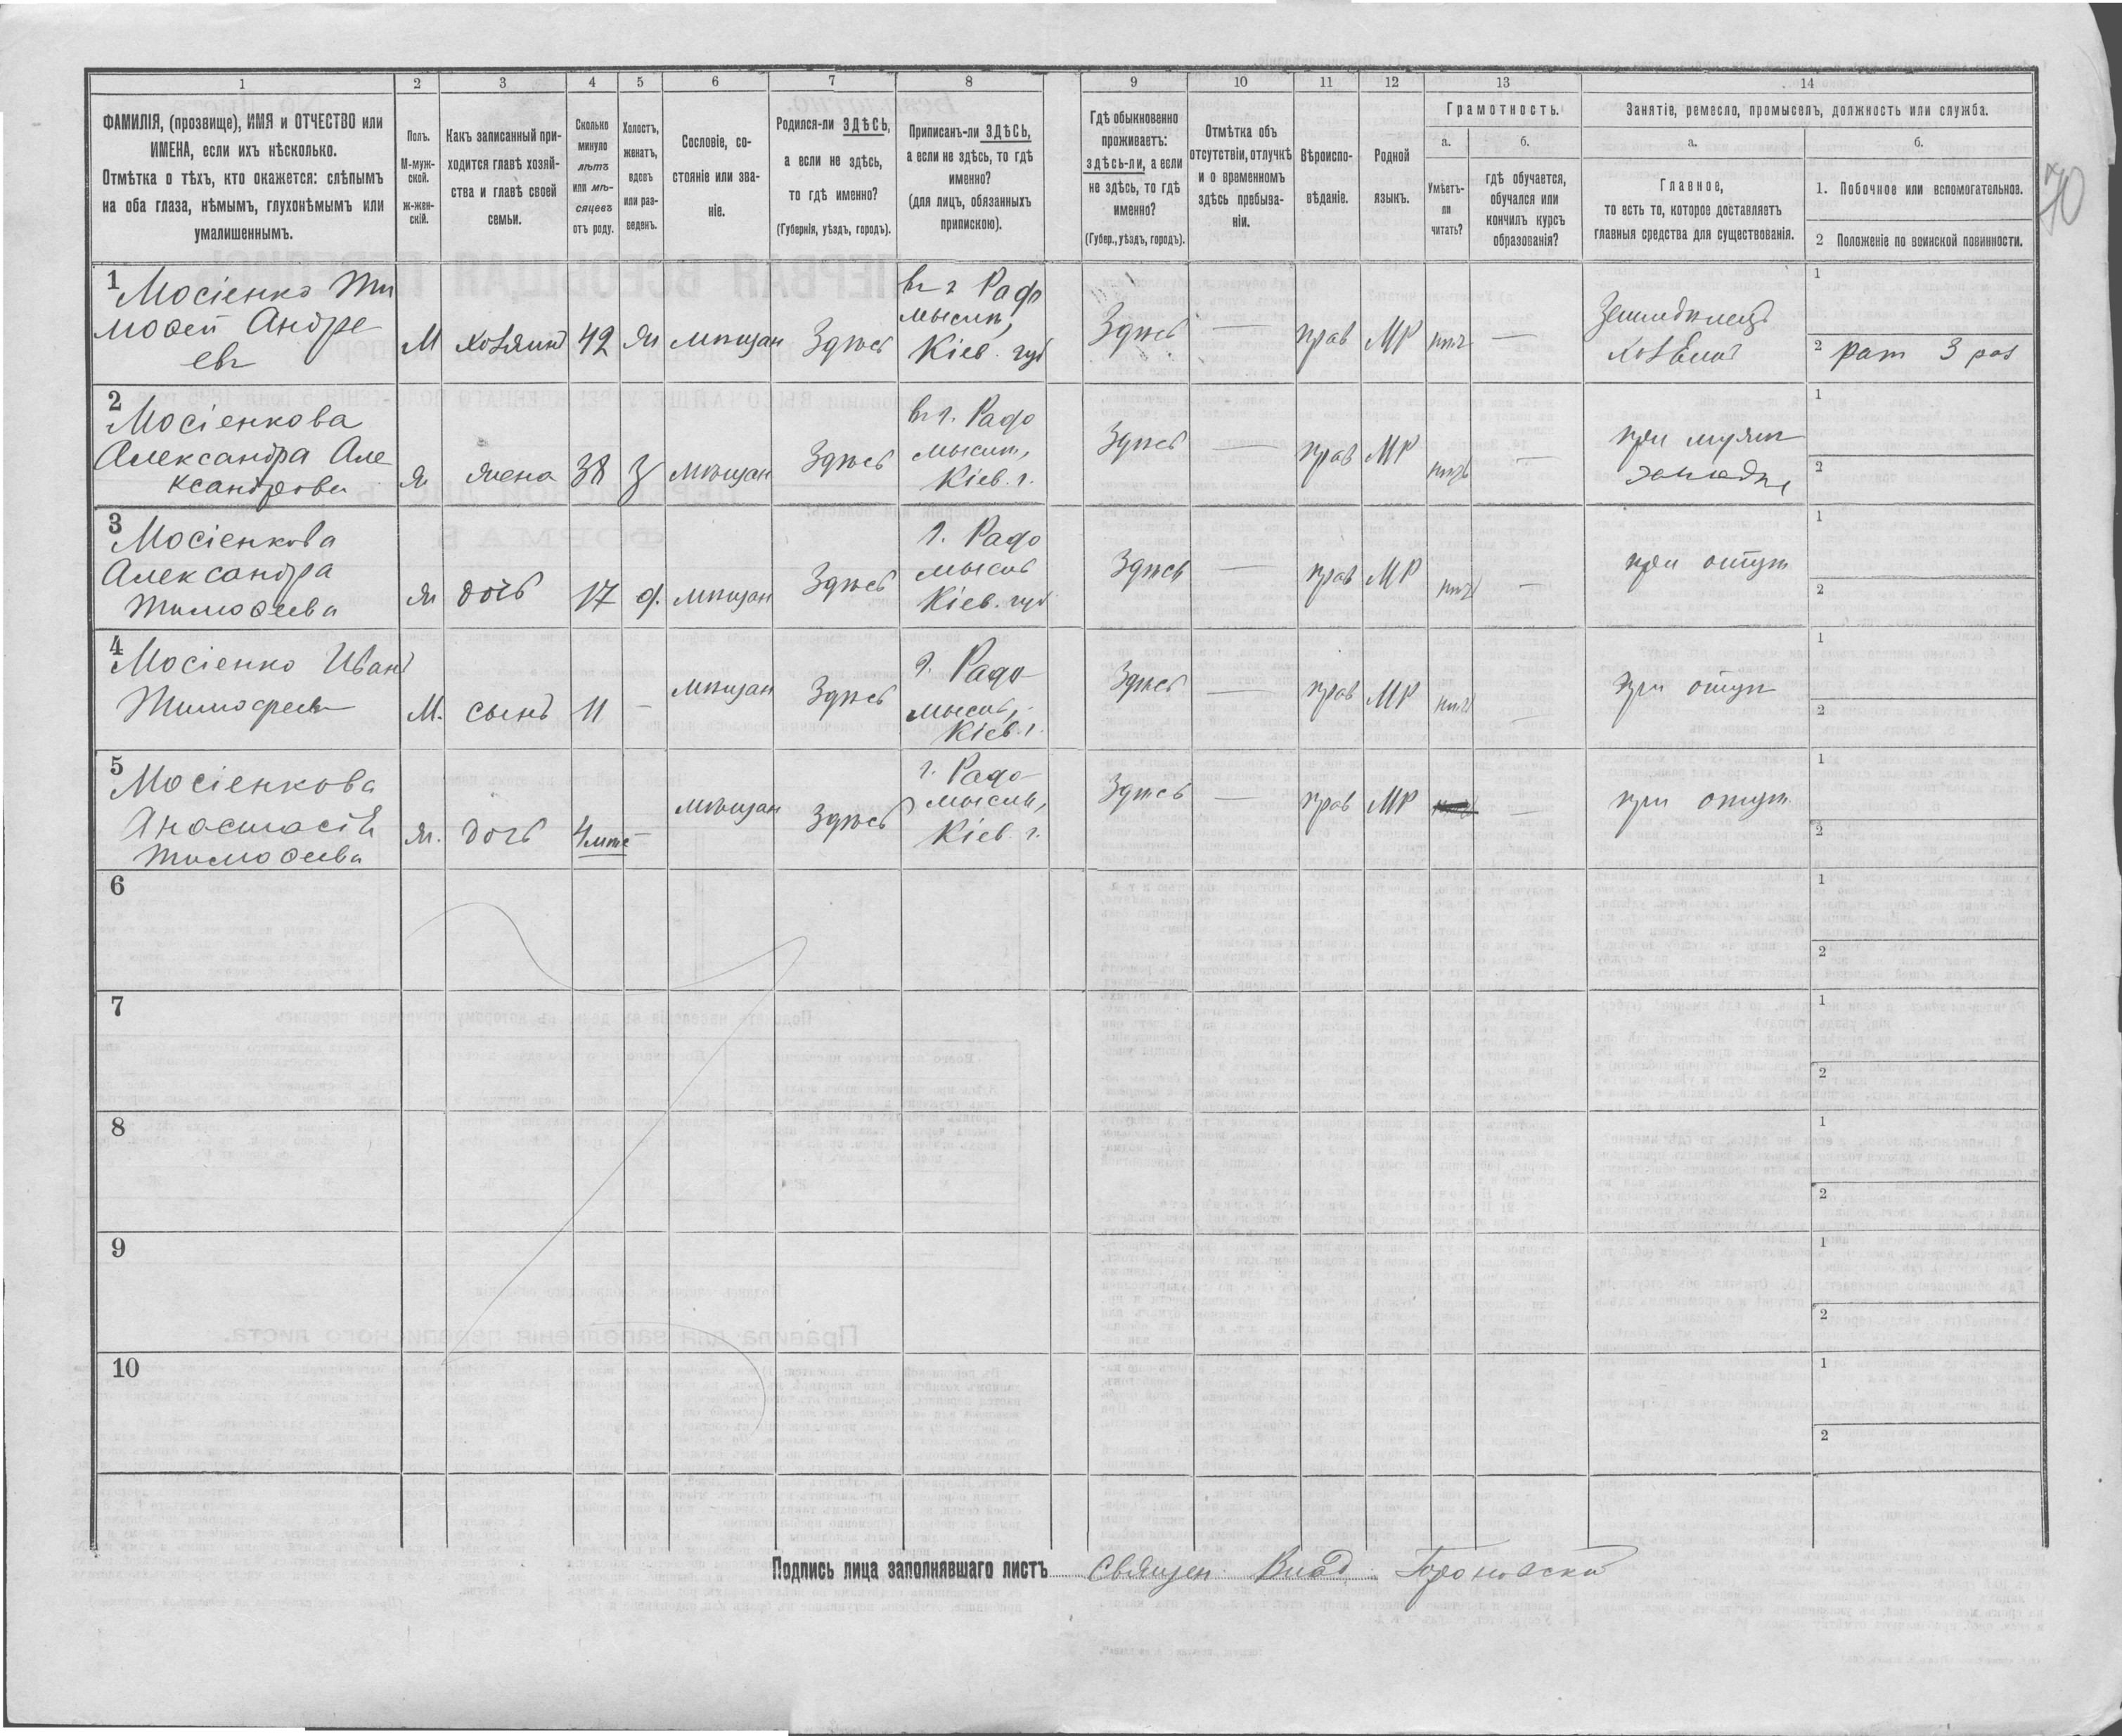 1 2 3 4 5 6 7 8 9 10 11 12 13 14
ФАМИЛІЯ, (прозвище), ИМЯ и ОТЧЕСТВО или
ИМЕНА, если ихъ нѣсколько.
Отмѣтка о тѣхъ, кто окажется: слѣпымъ
на оба глаза, нѣмымъ, глухонѣмымъ или
умалишеннымъ.
Полъ.
М-муж-
ской.
ж-жен-
скій.
Какъ записанный при-
ходится главѣ хозяй-
ства и главѣ своей
семьи.
Сколько
минуло
лѣтъ
или мѣ-
сяцевъ
отъ роду.
Холостъ,
женатъ,
вдовъ
или раз-
веденъ.
Сословіе, со-
стояніе или зва-
ніе.
Родился-ли ЗДѢСЬ,
а если не здѣсь,
то гдѣ именно?
(Губернія, уѣздъ, городъ).
Приписанъ-ли ЗДѢСЬ,
а если не здѣсь, то гдѣ
именно?
(для лицъ, обязанныхъ
припискою).
Гдѣ обыкновенно
проживаетъ:
здѣсь-ли, а если
не здѣсь, то гдѣ
именно?
(Губер., уѣздъ, городъ).
Отмѣтка объ
отсутствіи, отлучкѣ
и о временномъ
здѣсь пребыва-
ніи.
Вѣроиспо-
вѣданіе.
Родной
языкъ.
Грамотность.
а.
Умѣетъ-
ли
читать?
б.
гдѣ обучается,
обучался или
кончилъ курсъ
образованія?
Занятіе, ремесло, промыселъ, должность или служба.
а.
Главное,
то есть то, которое доставляетъ
главныя средства для существованія.
б.
1. Побочное или вспомогательное.
2 Положеніе по воинской повинности.
70
1
Мосіенко Ти
мофей Андре
евъ
М хозяинъ 42 ж мѣщан Здѣсь
въ г Радо
мыслѣ,
Кіев. губ
Здѣсь — прав МР нѣтъ —
Земледѣлецъ
хозяинъ
1
2 рат 3 раз
2
Мосіенкова
Александра Але
ксандрова
ж жена 38 З мѣщан Здѣсь
въ г. Радо
мыслѣ,
Кіев. г.
Здѣсь — прав МР нѣтъ —
при мужѣ
1
2
3
Мосіенкова
Александра
Тимофеева
ж дочь 17 д. мѣщан Здѣсь
г. Радо
мысль
Кіев. губ
Здѣсь — прав МР нѣтъ —
при отцѣ
1
2
4
Мосіенко Иванъ
Тимофеевъ
М. сынъ 11 — мѣщан Здѣсь
г. Радо
мысль,
Кіев. г.
Здѣсь — прав МР нѣтъ —
при отцѣ
1
2
5
Мосіенкова
Анастасія
Тимофеева
ж. дочь — мѣщан Здѣсь
г. Радо
мысль,
Кіев. г.
Здѣсь — прав МР —
при отцѣ
1
2
6
1
2
7
1
2
8
1
2
9
1
2
10
1
2
Подпись лица заполнявшаго листъ Священ. Влад.